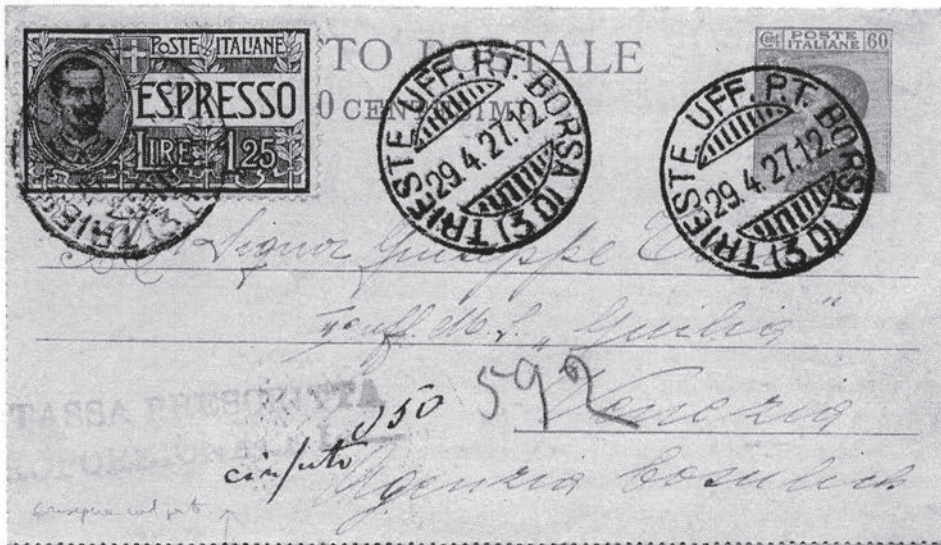 POSTE ITALIANE
ESPRESSO
LIRE 1,25
TO POSTALE
0 CENTESIMI
Cent POSTE ITALIANE 60
TRIESTE UFF. P.T. BORSA (3) 10
29.4.27.12
TRIESTE UFF. P.T. BORSA (3) 10
29.4.27.12
TRIESTE
Signor Giuseppe
uff. M. S. "Giulia"
592 Venezia
TASSA PRESCRITTA
050
Agenzia Cosulich